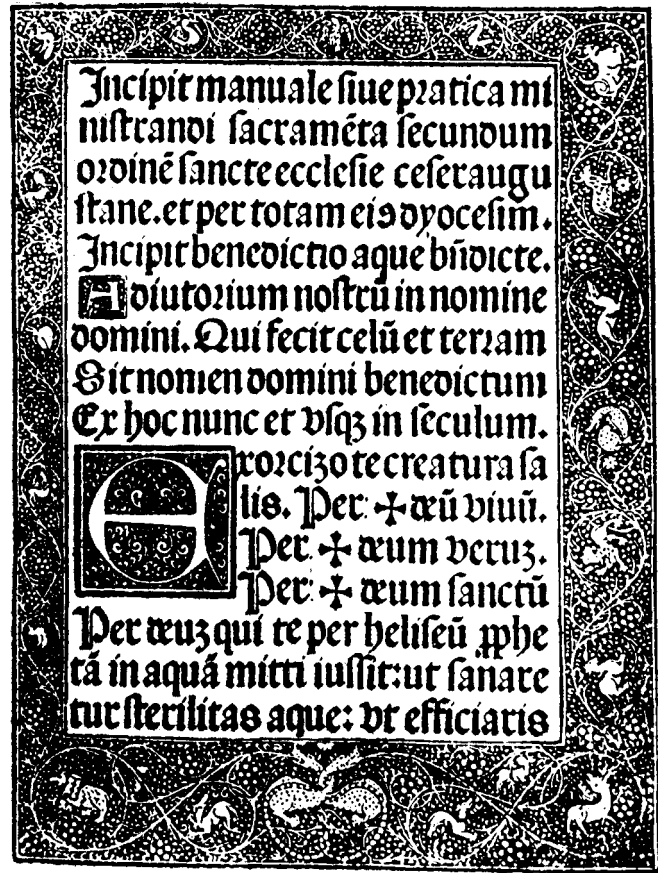 Incipit manuale siue pratica mi
nistrandi sacramēta secundum
ordinē sancte ecclesie cesaraugu
stane. et per totam eiꝰ dyocesim.
Incipit benedictio aque bñdicte.
Adiutorium nostrū in nomine
domini. Qui fecit celū et terram
Sit nomen domini benedictum
Ex hoc nunc et vsqꝫ in seculum.
Exorcizo te creatura sa
lis. Per ✠ deū viuū.
Per ✠ deum veruꝫ.
Per ✠ deum sanctū
Per deuꝫ qui te per heliseū ꝓphe
tā in aquā mitti iussit: ut sanare
tur sterilitas aque: vt efficiaris